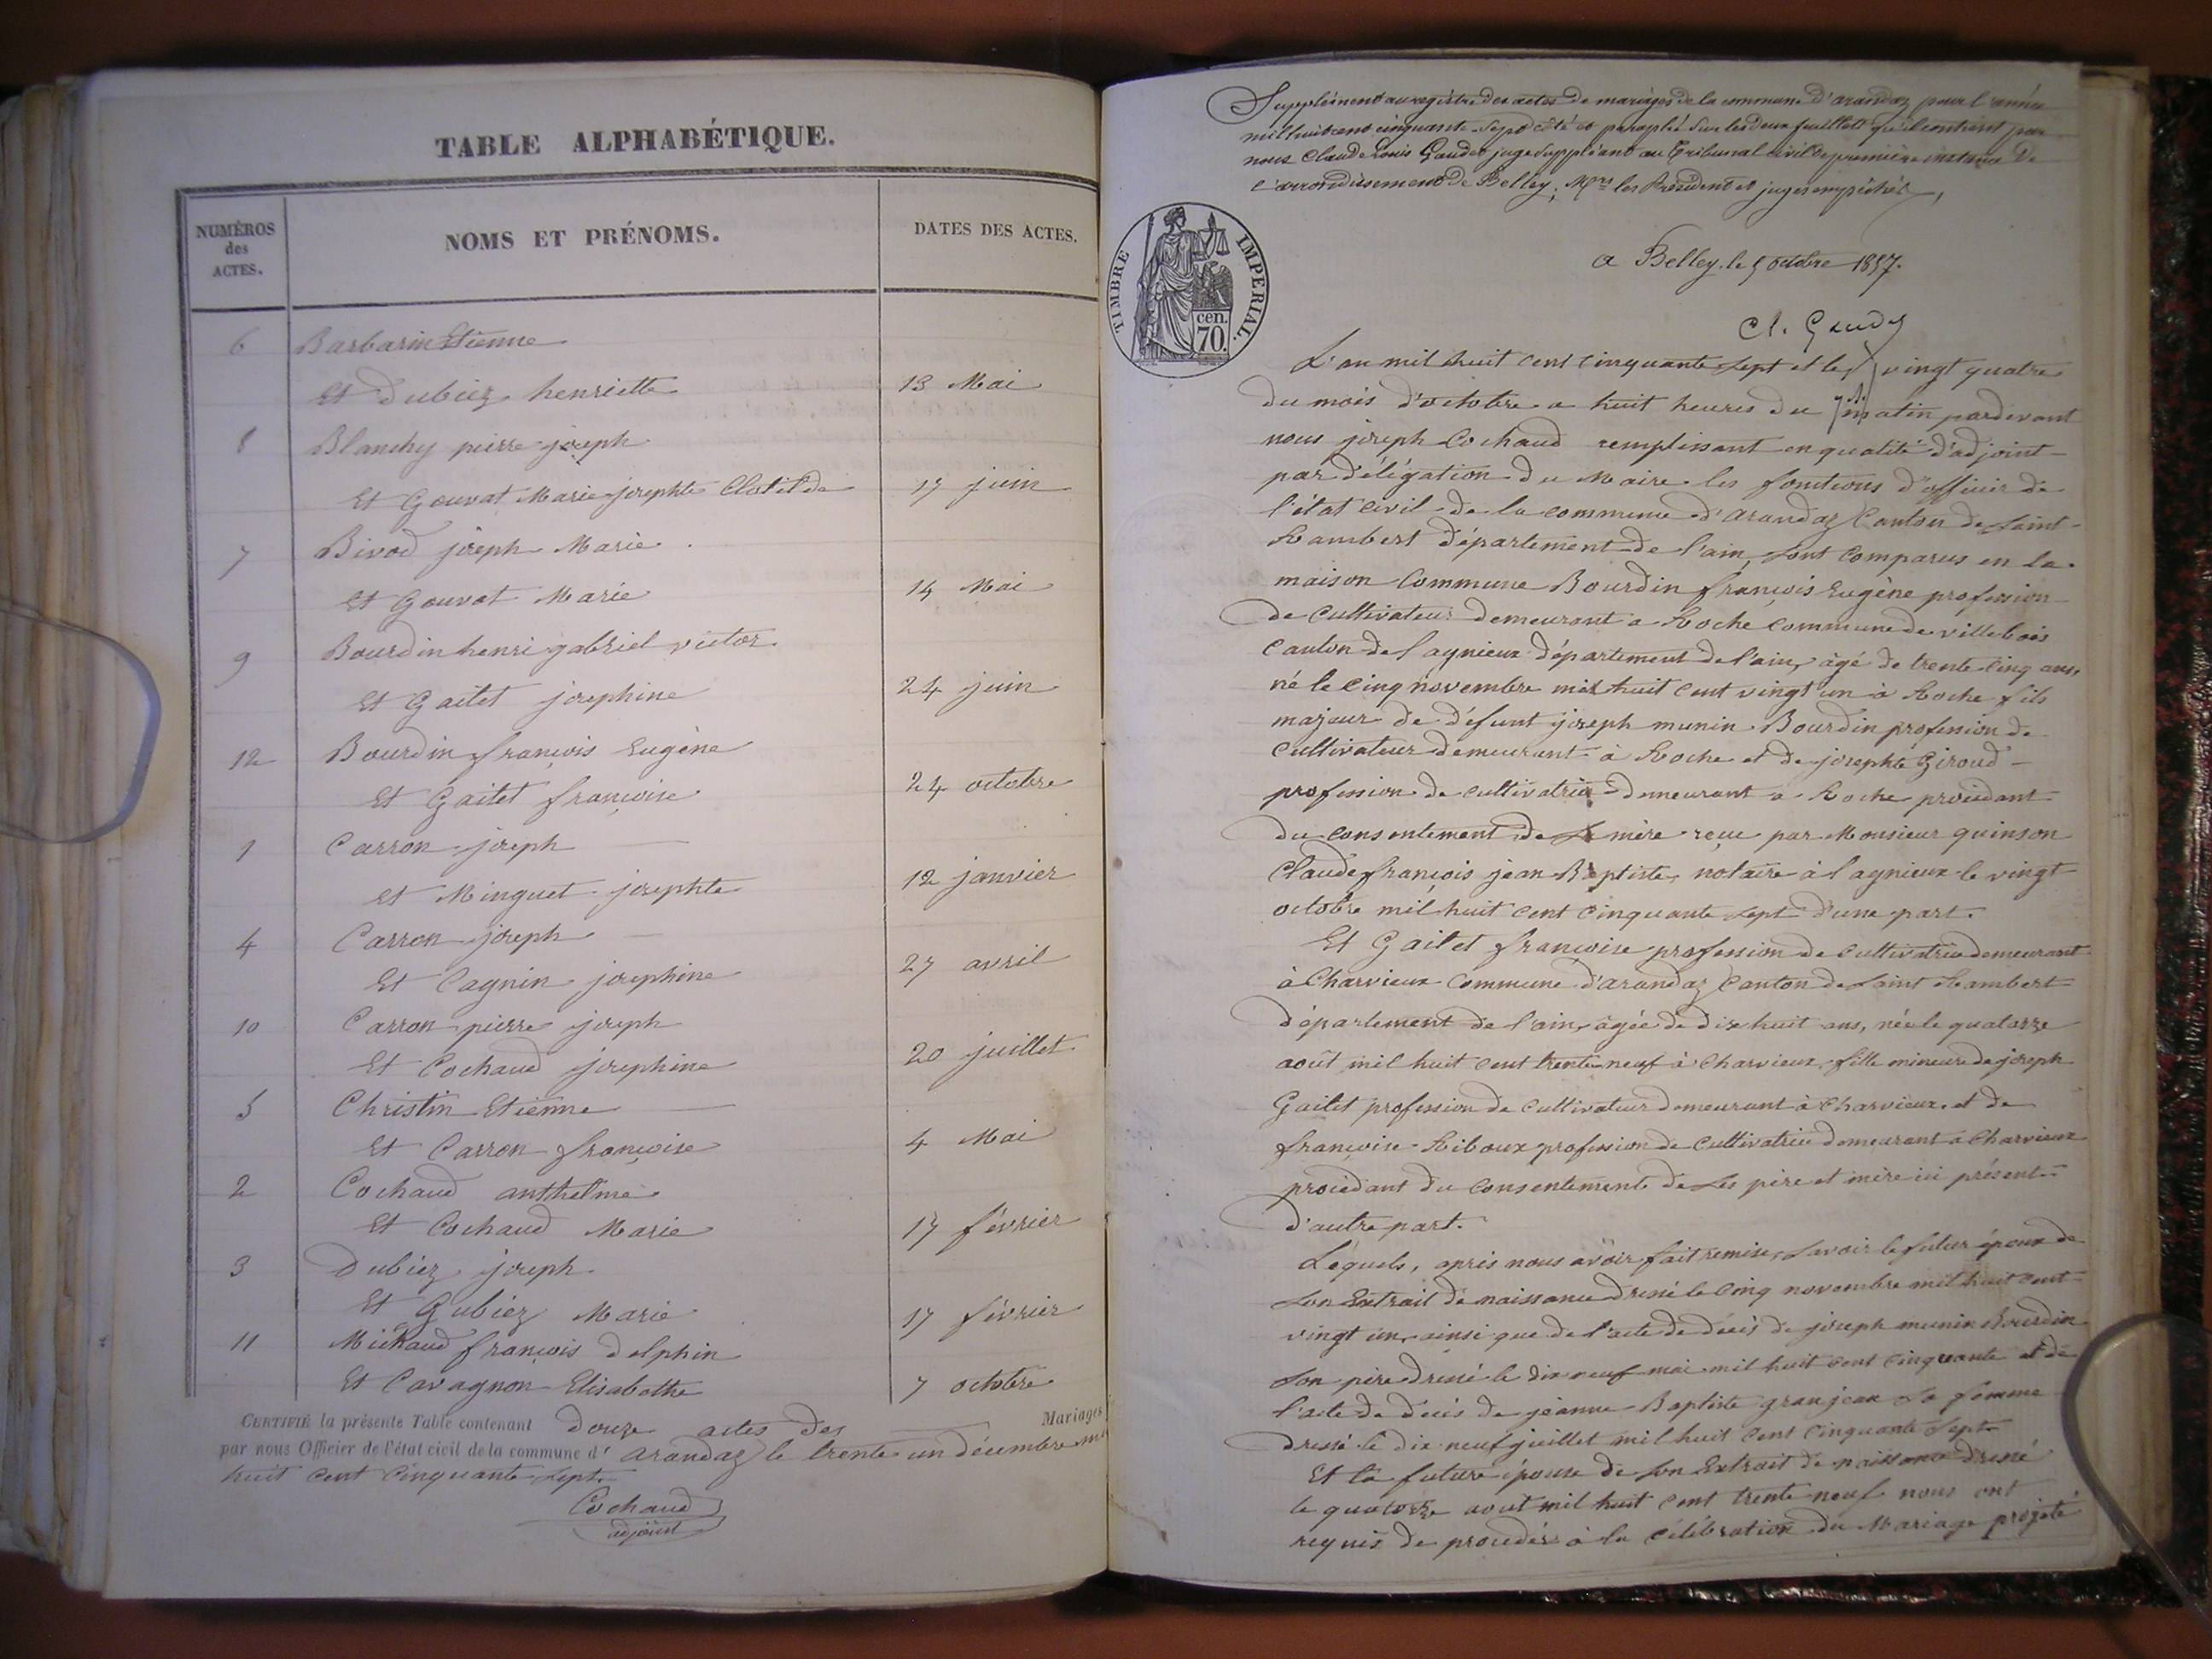 TABLE ALPHABÉTIQUE.
NUMÉROS
des
ACTES.
NOMS ET PRÉNOMS.
DATES DES ACTES.
6 Barbarin Etienne
Et Dubiez henriette 13 Mai
8 Blanchy pierre joseph
Et Gouvat Marie josephte Clotilde 17 juin
7 Bivod joseph Marie
Et Gouvat Marie 14 Mai
9 Bourdin henri gabriel victor
Et Gaitet josephine 24 juin
12 Bourdin françois Eugène
Et Gaitet françoise 24 octobre
1 Carron joseph
Et Minguet josephte 12 janvier
4 Carron joseph
Et Cagnin josephine 27 avril
10 Carron pierre joseph
Et Cochaud josephine 20 juillet
5 Christin Etienne
Et Carron françoise 4 Mai
2 Cochaud anthelme
Et Cochaud Marie 17 février
3 Dubiez joseph
Et Gubiez Marie 17 février
11 Michaud françois delphin
Et Cavagnon Elisabethe 7 octobre
CERTIFIÉ la présente Table contenant douze actes des Mariages
par nous Officier de l'état civil de la commune d' arandaz le trente un décembre mil
huit cent cinquante sept.
Cochaud
adjoint
Supplément au registre des actes de mariages de la commune d'arandaz pour l'année
mil huit cent cinquante-sept côté et paraphé sur les deux feuillets qu'il contient par
nous Claude Louis Gaudet juge suppléant au Tribunal civil de première instance de
l'arrondissement de Belley, Mrs les Président et juges empêchés,
a Belley, le 5 octobre 1857.
Cl. Gaudet
TIMBRE IMPERIAL.
cen.
70.
L'an mil huit cent cinquante sept et le vingt quatre
du mois d'octobre a huit heures du matin pardevant
nous joseph Cochaud remplissant en qualité d'adjoint
par délégation du Maire les fonctions d'officier de
l'état civil de la commune d'arandaz Canton de Saint-
Rambert département de l'ain, sont Comparus en la
maison Commune Bourdin françois Eugène profession
de Cultivateur demeurant a Roche commune de villebois
Canton de lagnieux département de l'ain, âgé de trente cinq ans,
né le cinq novembre mil huit cent vingt un à Roche fils
majeur de défunt joseph munin Bourdin profession de
Cultivateur demeurant à Roche et de josephte Giroud
profession de cultivatrice demeurant a Roche procédant
du consentement de sa mère reçu par Monsieur quinson
Claude françois jean Baptiste, notaire à lagnieux le vingt
octobre mil huit cent cinquante sept d'une part.
Et Gaitet françoise profession de Cultivatrice demeurant
à Charvieux Commune d'arandaz Canton de Saint Rambert
département de l'ain, âgée de dix huit ans, née le quatorze
août mil huit cent trente neuf à Charvieux, fille mineure de joseph
Gaitet profession de Cultivateur demeurant à Charvieux. et de
françoise Riboux profession de Cultivatrice demeurant a Charvieux
procédant du Consentement de ses père et mère ici présent
d'autre part.
Léquels, après nous avoir fait remise, savoir le futur époux de
son Extrait de naissance dressé le Cinq novembre mil huit cent
vingt un, ainsi que de l'acte de décès de joseph munin Bourdin
son père dressé le dix neuf mai mil huit cent cinquante et de
l'acte de décès de jéanne Baptiste granjean sa femme
dressé le dix neuf juillet mil huit cent cinquante sept.
Et la future épouse de son Extrait de naissance dressé
le quatorze aout mil huit cent trente neuf nous ont
requis de procéder à la célébration du Mariage projeté